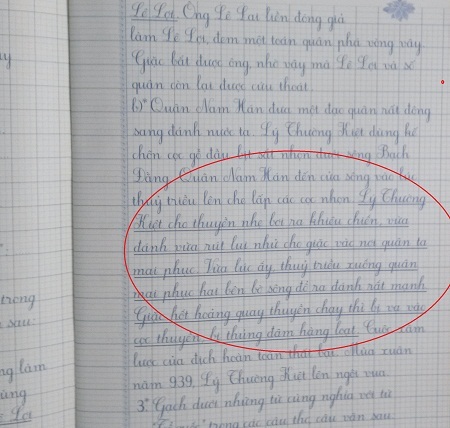 Lê Lợi. Ông Lê Lai liền đóng giả
làm Lê Lợi, đem một toán quân phá vòng vây
Giặc bắt được ông, nhờ vậy mà Lê Lợi và số
quân còn lại được cứu thoát.
b) Quân Nam Hán đưa một đạo quân rất đông
sang đánh nước ta. Lý Thường Kiệt dùng kế
chôn cọc gỗ đầu bịt sắt nhọn dưới sông Bạch
Đằng. Quân Nam Hán đến cửa sông vào lúc
thuỷ triều lên che lấp các cọc nhọn. Lý Thường
Kiệt cho thuyền nhẹ bơi ra khiêu chiến, vừa
đánh vừa rút lui nhử cho giặc vào nơi quân ta
mai phục. Vừa lúc ấy thuỷ triều xuống quân
mai phục hai bên bờ sông đổ ra đánh rất mạnh
Giặc hốt hoảng quay thuyền chạy thì bị va vào
cọc thuyền bị thủng đắm hàng loạt. Cuộc xâm
lược của địch hoàn toàn thất bại. Mùa xuân
năm 939, Lý Thường Kiệt lên ngôi vua.
3. Gạch dưới những từ cùng nghĩa với từ
trong các câu thơ, câu văn sau
ây
trong
sau:
ng làm
ùng
Lợi